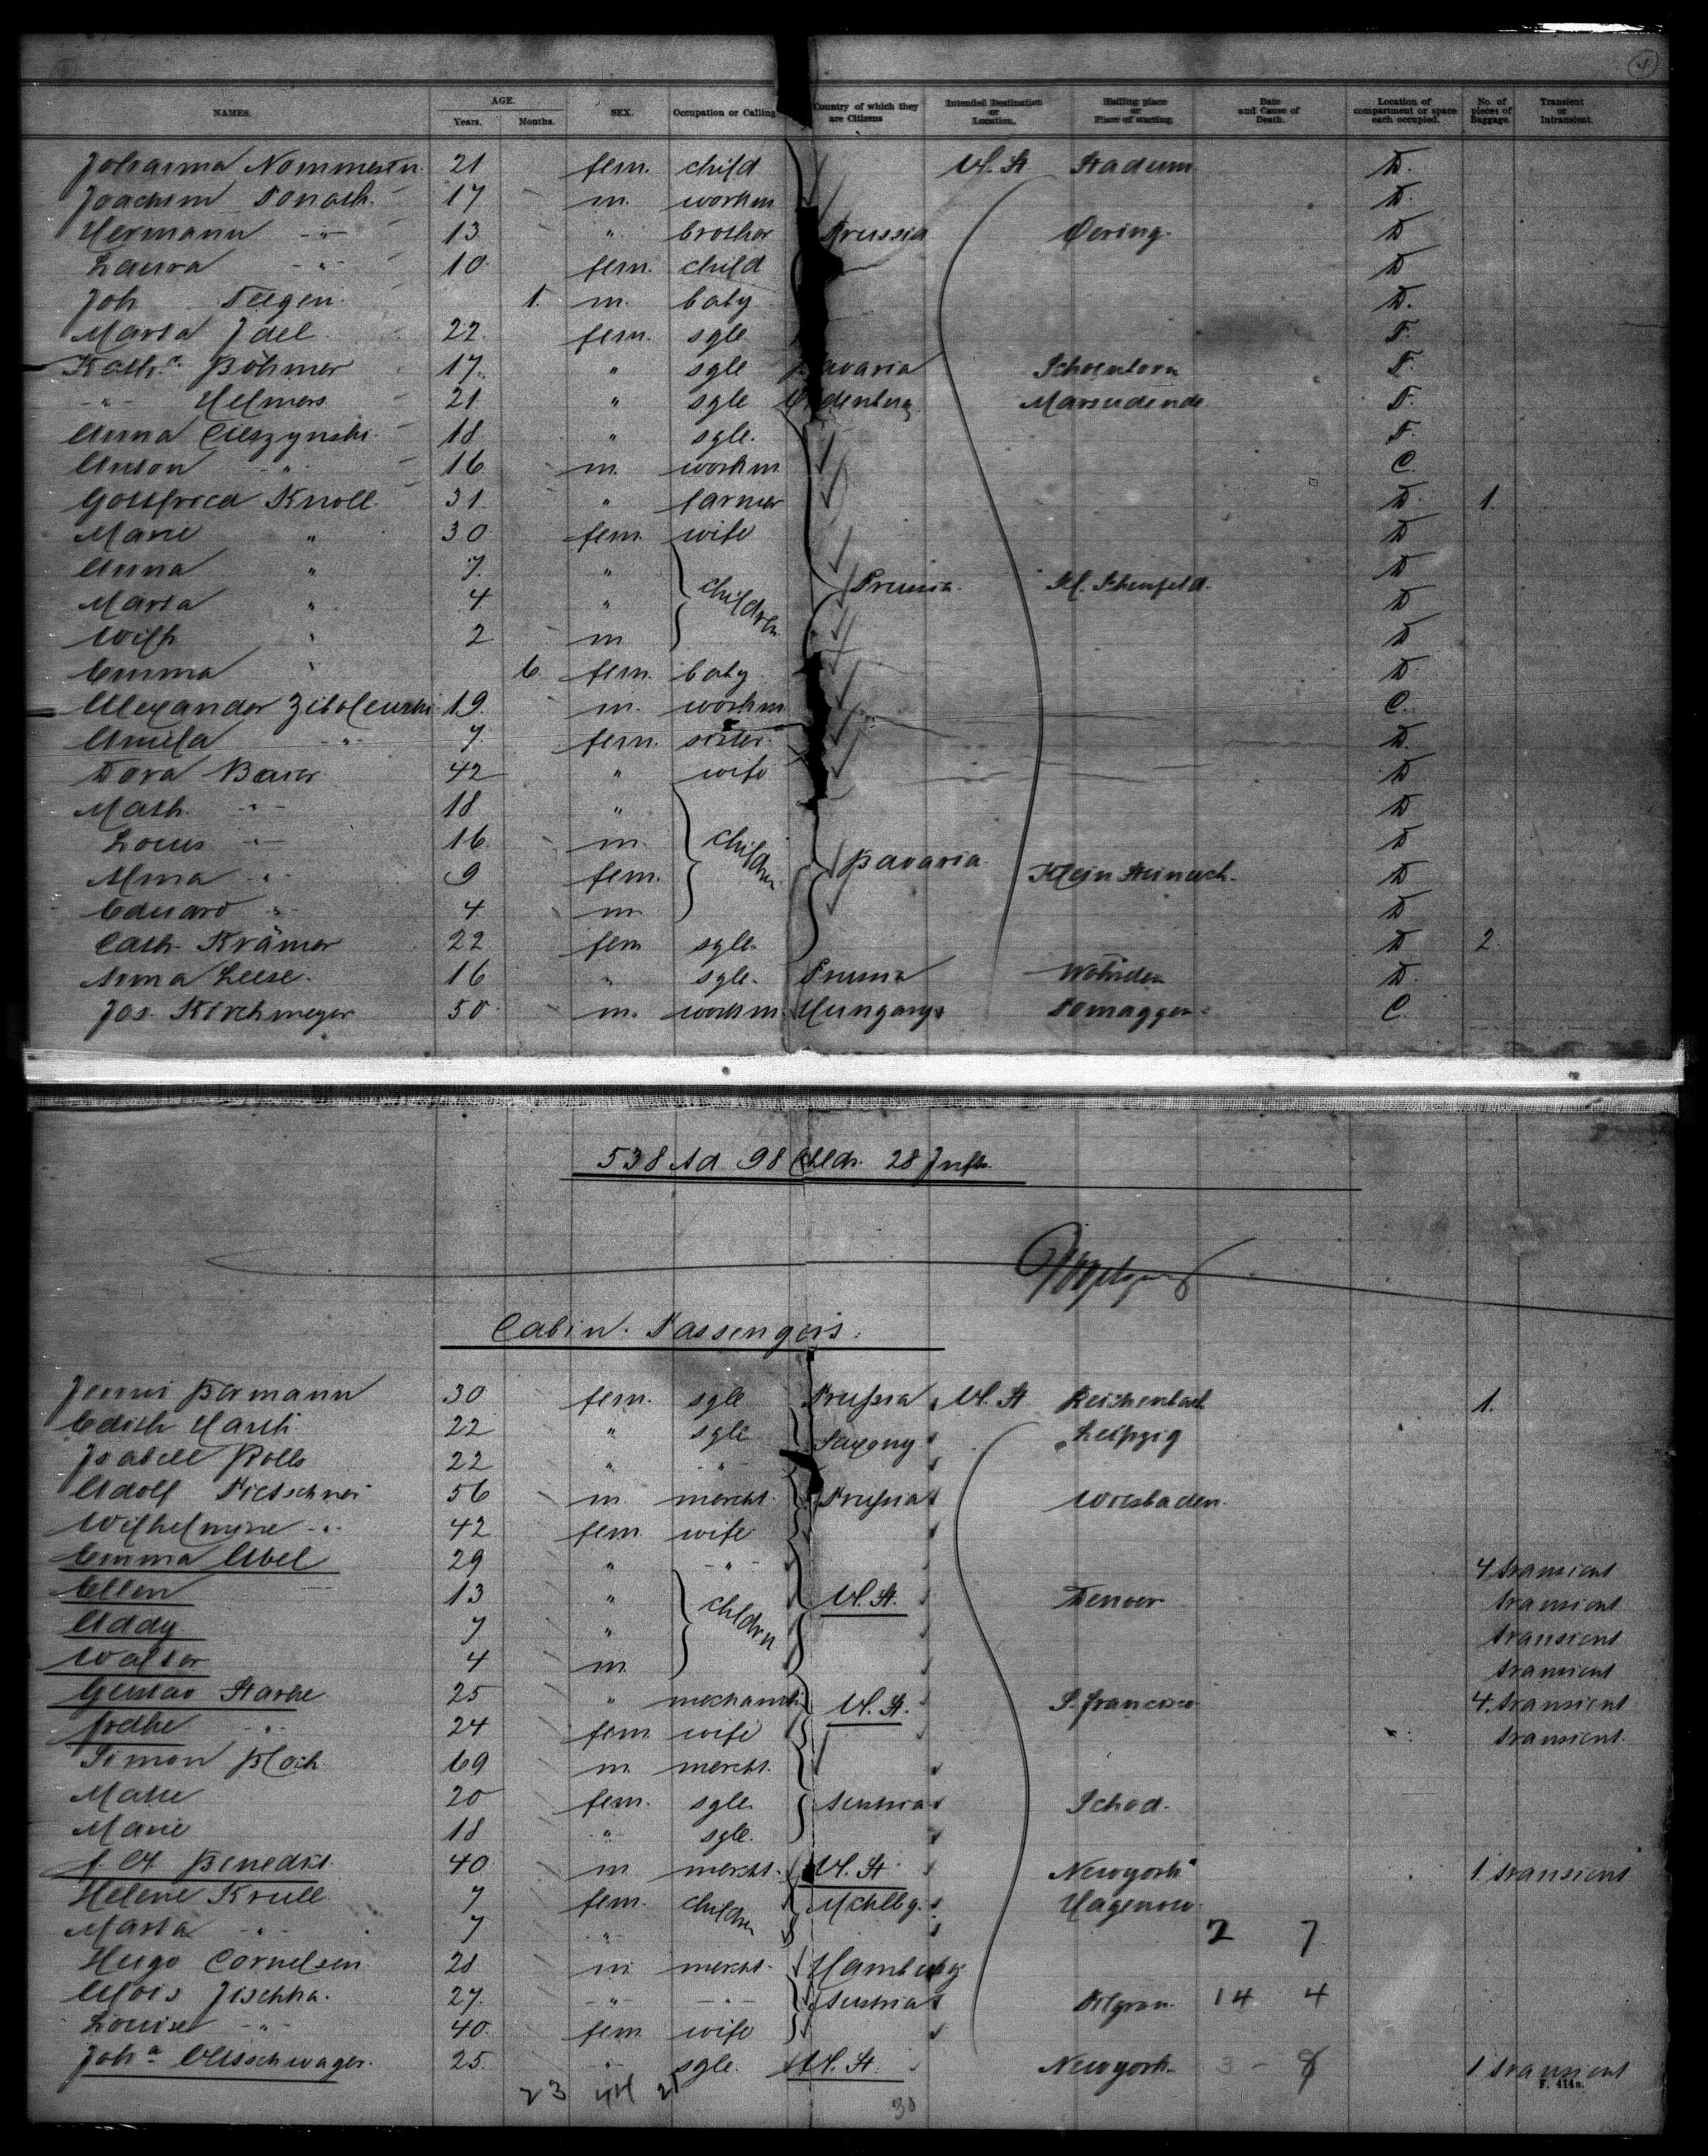 4
NAMES. AGE. Years. Months. SEX. Occupation or Calling Country of which they are Citizens Intended Destination or Location. Hailing place or Place of starting. Date and Cause of Death. Location of compartment or space each occupied. No. of pieces of Baggage. Transient or Intransient.
Johanna 21 fem. child U. St Stadum D.
Joachim 17 m. workm D.
Hermann -"- 13 " brother Prussia Oering. D
Laura -"- 10 fem. child D
Joh 1. m. baby D.
Marta 22 fem. sgle F.
Kath.a Böhmer 17. " sgle Bavaria F.
-"- Helmers 21 " sgle F.
Anna Cieszynski 18 " sgle. F.
Anton -"- 16 m. workm C.
Gottfried Knoll 31 " farmer D. 1.
Marie " 30 fem. wife D
Anna " 7. " children Prussia. D
Marta " 4 " D
Wilh " 2 m D
Emma " 6 fem. baby D
Alexander 19. m. workm C.
-"- 7. fem. sister D.
Dora 42 " wife D
Math. -"- 18 " children D
Louis -"- 16 m. Bavaria D
Alma -"- 9 fem. Klein Steinach. D
Eduard -"- 4 m. D
Cath. Krämer 22 fem sgle D 2.
Anna Leese. 16 " sgle. Prussia D.
Jos. Kirchmeyer 50 m. workm Hungary C.
538 Ad 98 Chldr. 28 Infts.
Cabin. Passengers.
Jenni Bermann 30 fem. sgle Prussia U. St Reichenbach 1.
Edith 22 " sgle Saxony Leipzig
Isabell 22 " -"-
Adolf 56 m. mercht. Prussia Wiesbaden.
Wilhelmine -"- 42 fem. wife
Emma Abel 29 " -"- 4 transient
Ellen 13 " children U. St. Denver transient
Addy 7 " transient
Walter 4 m. transient
Gustav Starke 25 " mechanic U. St. S. francisco 4. transient
-"- 24 fem. wife transient.
Simon Bloch 69 m. mercht.
20 fem. sgle. Austria
Marie 18 -"- sgle.
Benedict 40 m. mercht. U. St. Newyork 1 transient
Helene Krull 7 fem. children Mcklbg. Hagenow
Marta -"- 7 -"- 2 7
Hugo Cornelsen 28 m mercht. Hamburg
Alois 27. -"- -"- Austria 14 4
Louise -"- 40. fem wife
Joh.a 25. -"- sgle. U. St. Newyork. 3 - 8 1 transient
23 44 21 30 F. 414a.